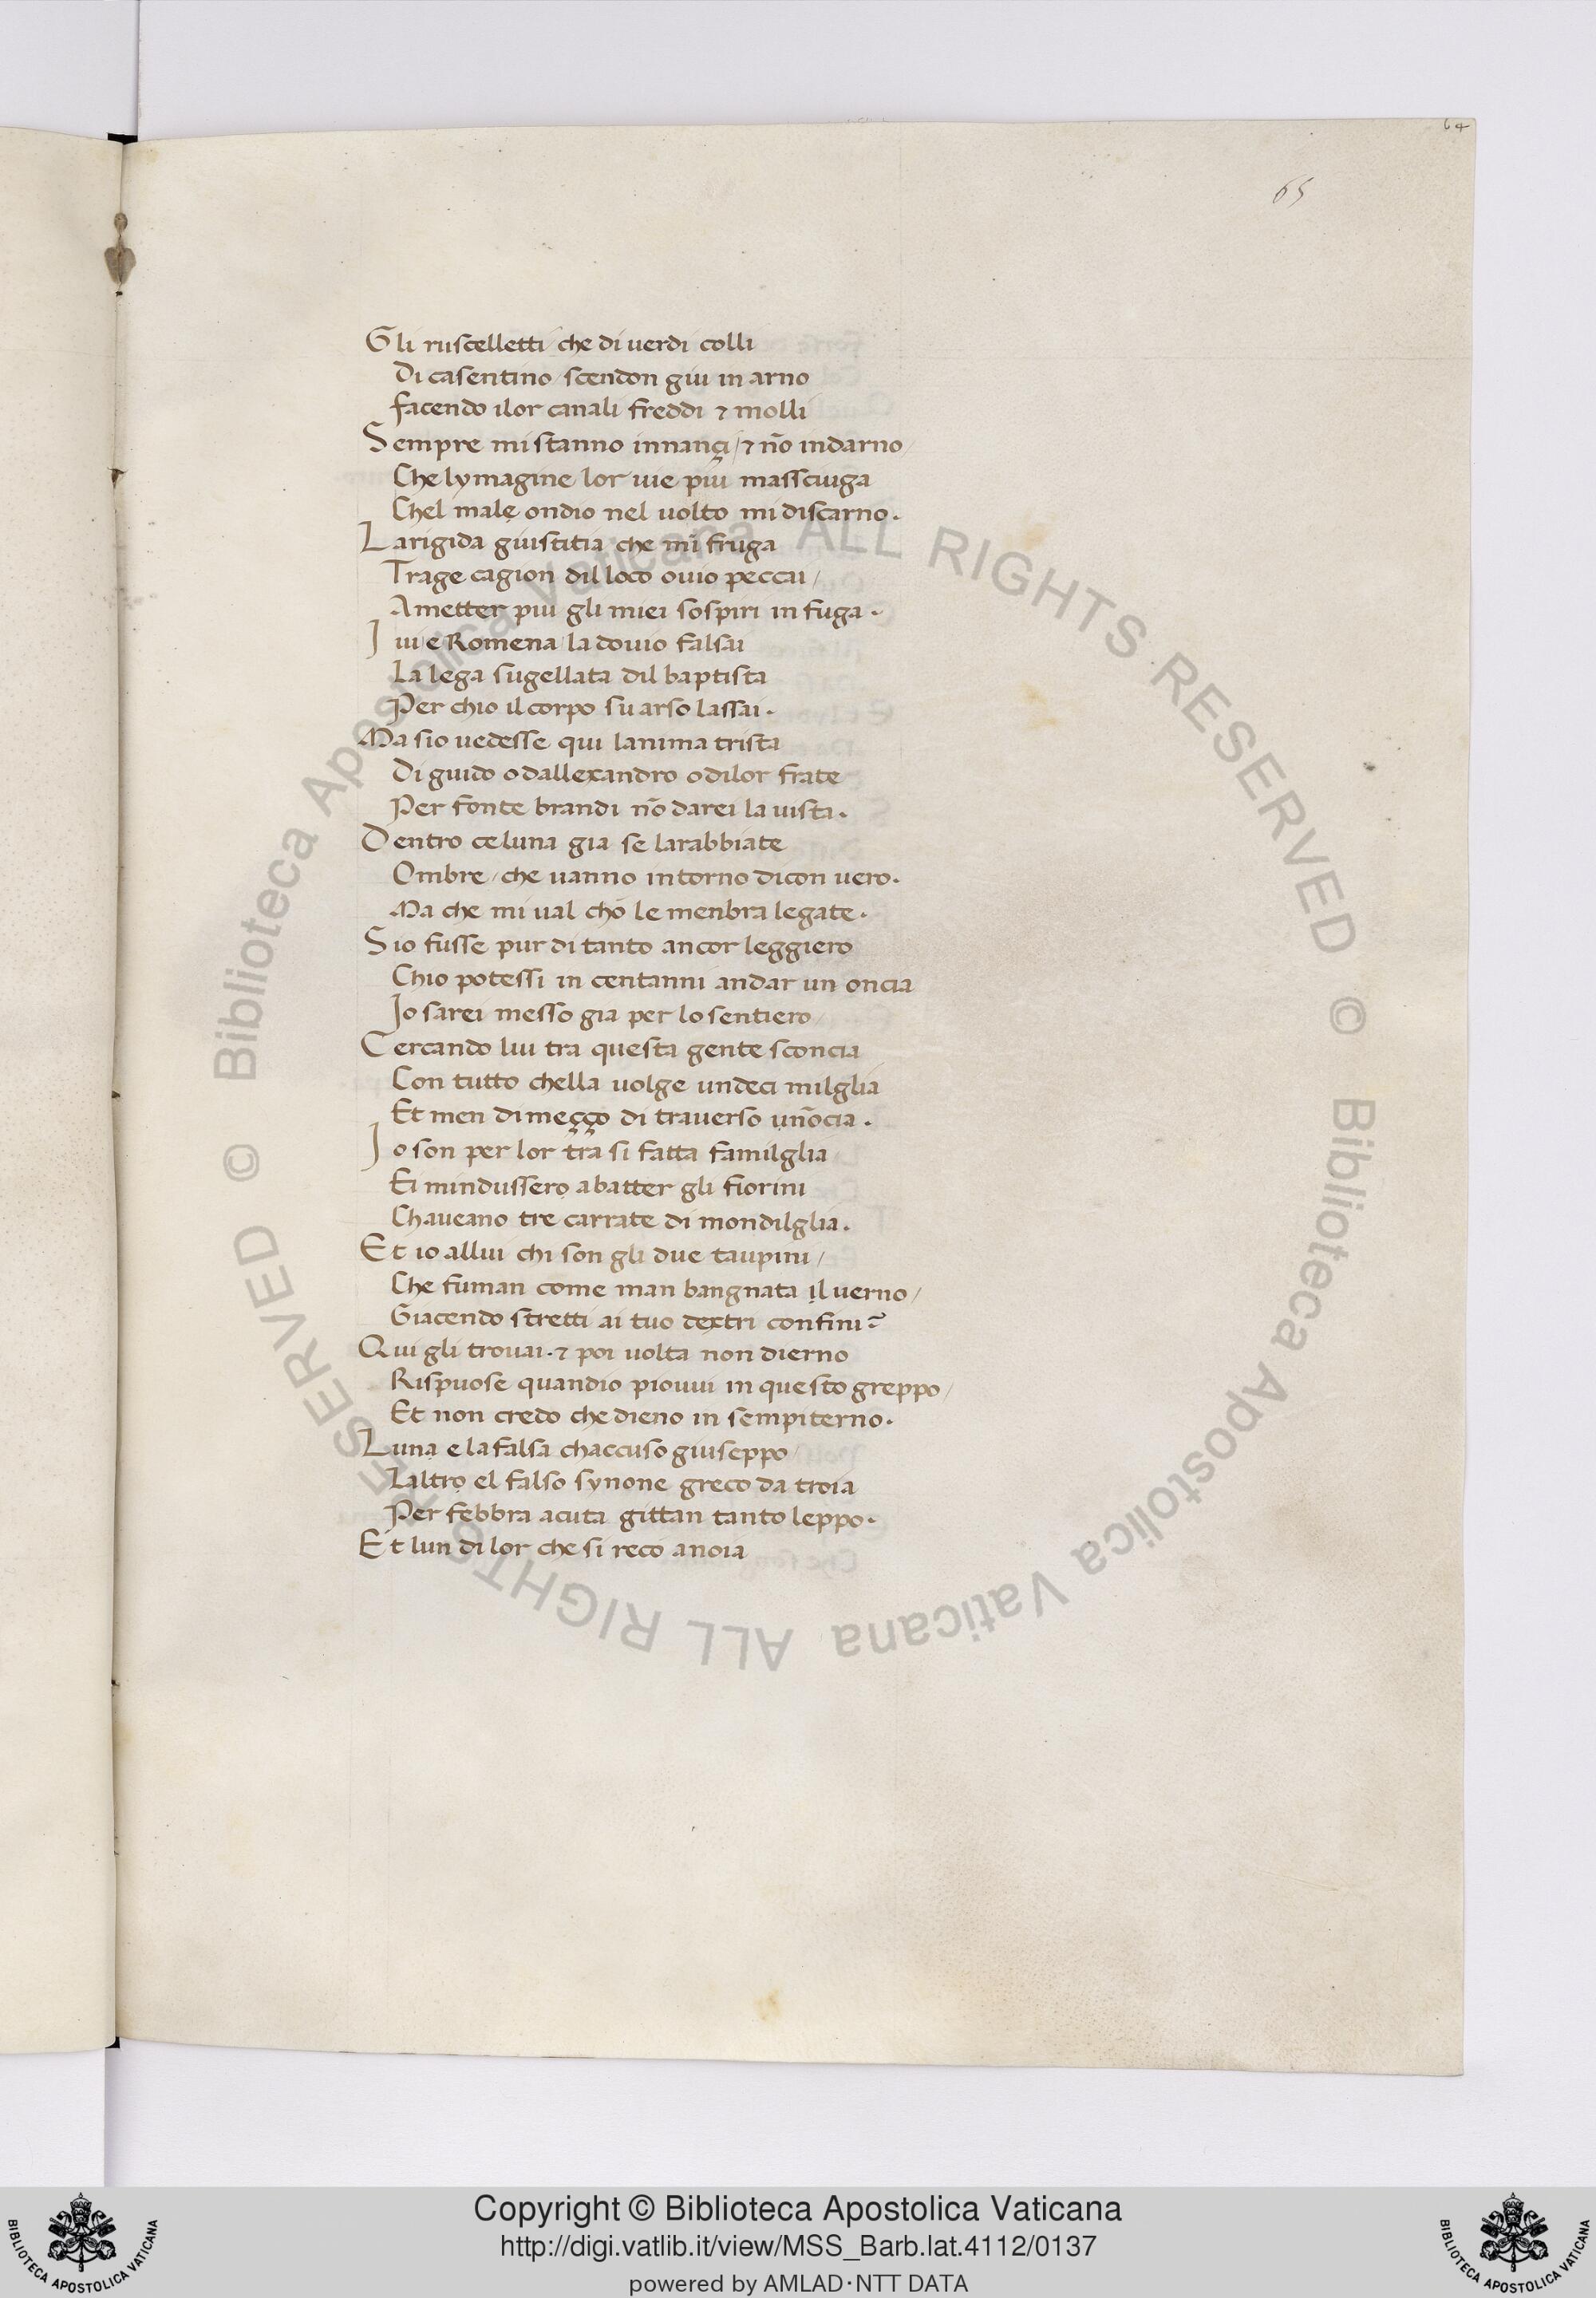 64
65
Gli ruscelletti / che di uerdi colli
Di casentino / scendon giu in arno
facendo ilor canali freddi ⁊ molli
Sempre mi stanno innançi / ⁊ nō indarno /
Che lymagine lor uie piu massciuga
Chel malẹ ondio nel uolto mi discarno.
La rigida giustitia che mi fruga
Trage cagion dil loco ouio peccai /
A metter piu gli miei sospiri in fuga.
Iui / e Romena / la douio falsai
La lega sugellata dil baptista
Per chio il corpo su arso lassai.
Ma sio uedesse qui lanima trista
Di guido o dallexandro o dilor frate
Per fonte brandi nō darei la uista.
Dentro ce luna gia se larabbiate
Ombre / che uanno intorno dicon uero.
Ma che mi ual chō le menbra legate.
Sio fusse pur di tanto ancor leggiero
Chio potessi in centanni andar un oncia
Io sarei messo gia per lo sentiero /
Cercando lui tra questa gente sconcia
Con tutto chella uolge undeci milglia
Et men di meçço di trauerso unōcia.
Io son per lor tra si fatta familglia
Ei mindusserọ a batter gli fiorini
Chaueano tre carrate di mondilglia.
Et io allui chi son gli due taupini /
Che fuman come man bangnata ịl uerno /
Giacendo stretti ai tuo dextri confini?
Qui gli trouai. ⁊ poi uolta non dierno
Rispuose quandio piouui in questo greppo /
Et non credo che dieno in sempiterno.
Lunạ e la falsa chaccuso giuseppo /
Laltrọ el falso synone greco da troia
Per febbra acuta gittan tanto leppo.
Et lun di lor che si reco a noia
© Biblioteca Apostolica Vaticana ALL RIGHTS RESERVED © Biblioteca Apostolica Vaticana ALL RIGHTS RESERVED
Copyright © Biblioteca Apostolica Vaticana
http://digi.vatlib.it/view/MSS_Barb.lat.4112/0137
powered by AMLAD·NTT DATA
BIBLIOTECA APOSTOLICA VATICANA
BIBLIOTECA APOSTOLICA VATICANA